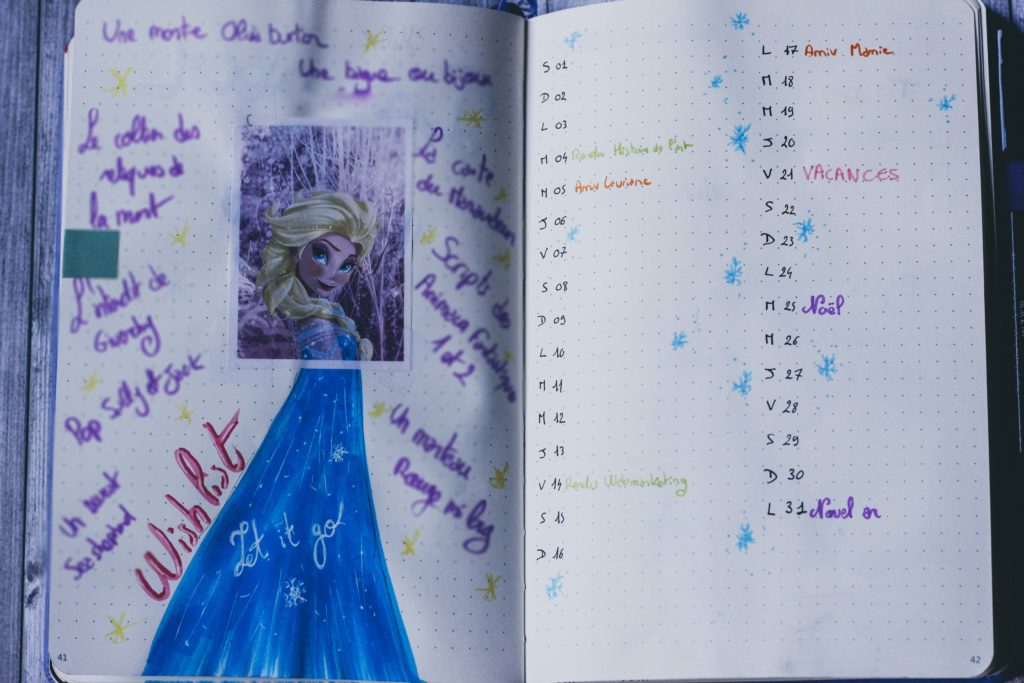 Une montre Olivia Burton
Une bague ou bijoux
Le collier des
reliques de
la mort
L'interdit de
Gucchy
Pop Sally et Jack
Un
La carte
du Maraudeur
Scripts des
Animaux Fantastiques
1 et 2
Un manteau
Rouge
Wish list
Let it go
41
S 01
D 02
L 03
M 04 Rendu Histoire de l'art
M 05 Anniv Lauriane
J 06
V 07
S 08
D 09
L 10
M 11
M 12
J 13
V 14 Rendu Webmarketing
S 15
D 16
L 17 Anniv Mamie
M 18
M 19
J 20
V 21 VACANCES
S 22
D 23
L 24
M 25 Noël
M 26
J 27
V 28
S 29
D 30
L 31 Nouvel an
42